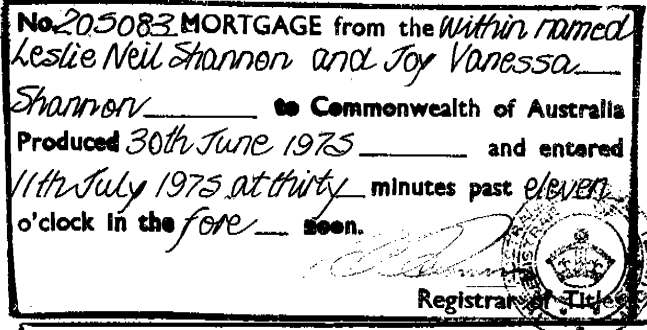 No. 205083 MORTGAGE from the within named
Leslie Neil Shannon and Joy Vanessa
Shannon to Commonwealth of Australia
Produced 30th June 1975 and entered
11th July 1975 at thirty minutes past eleven
o'clock in the fore noon.
Registrar of Titles